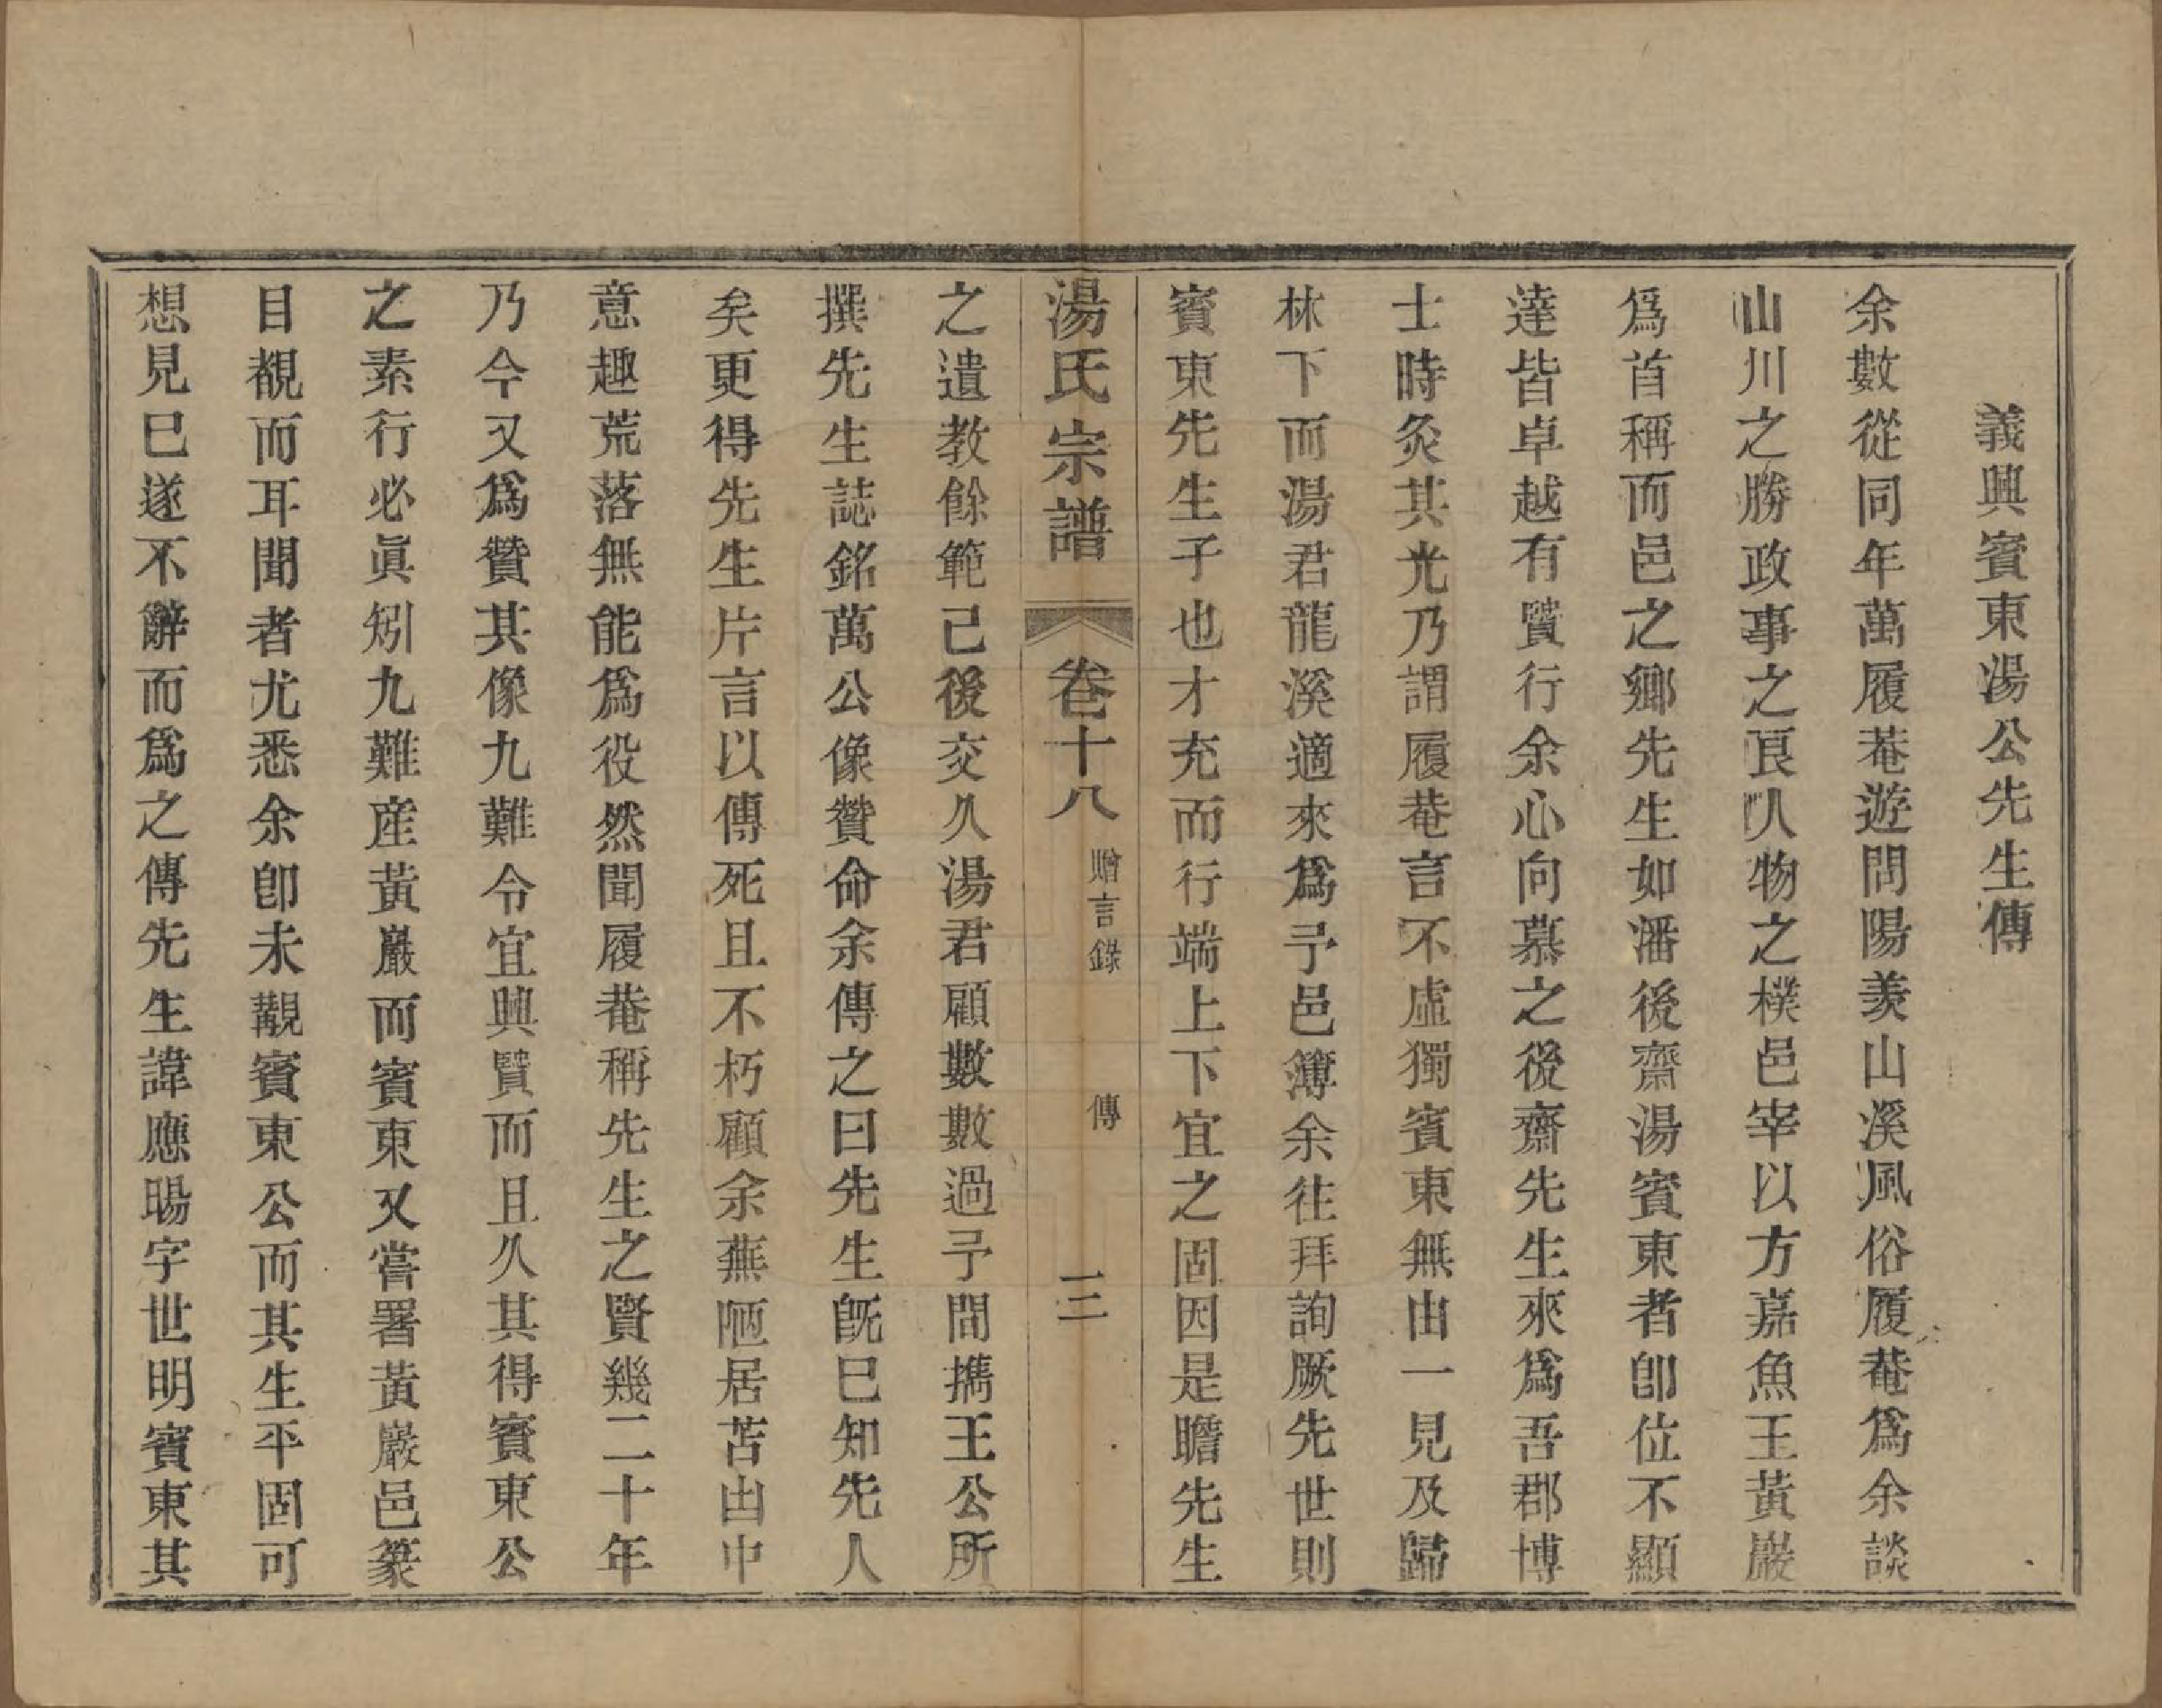 義興賓東湯公先生傳
余數從同年萬履菴遊問陽羨山溪風俗履菴爲余談
山川之勝政事之良人物之樸邑宰以方嘉魚王黃巖
爲首稱而邑之鄉先生如潘後齋湯賓東者卽位不顯
達皆卓越有贒行余心向慕之後齋先生來爲吾郡博
士時炙其光乃謂履菴言不虛獨賓東無由一見及歸
林下而湯君龍溪適來爲予邑簿余往拜詢厥先世則
賓東先生子也才充而行端上下宜之固因是瞻先生
湯氏宗譜 卷十八 贈言錄 傳 三
之遺教餘範已後交久湯君顧數數過予間攜王公所
撰先生誌銘萬公像贊命余傳之曰先生旣已知先人
矣更得先生片言以傳死且不朽顧余蕪陋居苫凷中
意趣荒落無能爲役然聞履菴稱先生之賢幾二十年
乃今又爲贊其像九難令宜興贒而且久其得賓東公
之素行必眞矧九難産黃巖而賓東又嘗署黃巖邑篆
目覩而耳聞者尤悉余卽未觀賓東公而其生平固可
想見已遂不辭而爲之傳先生諱應暘字世明賓東其